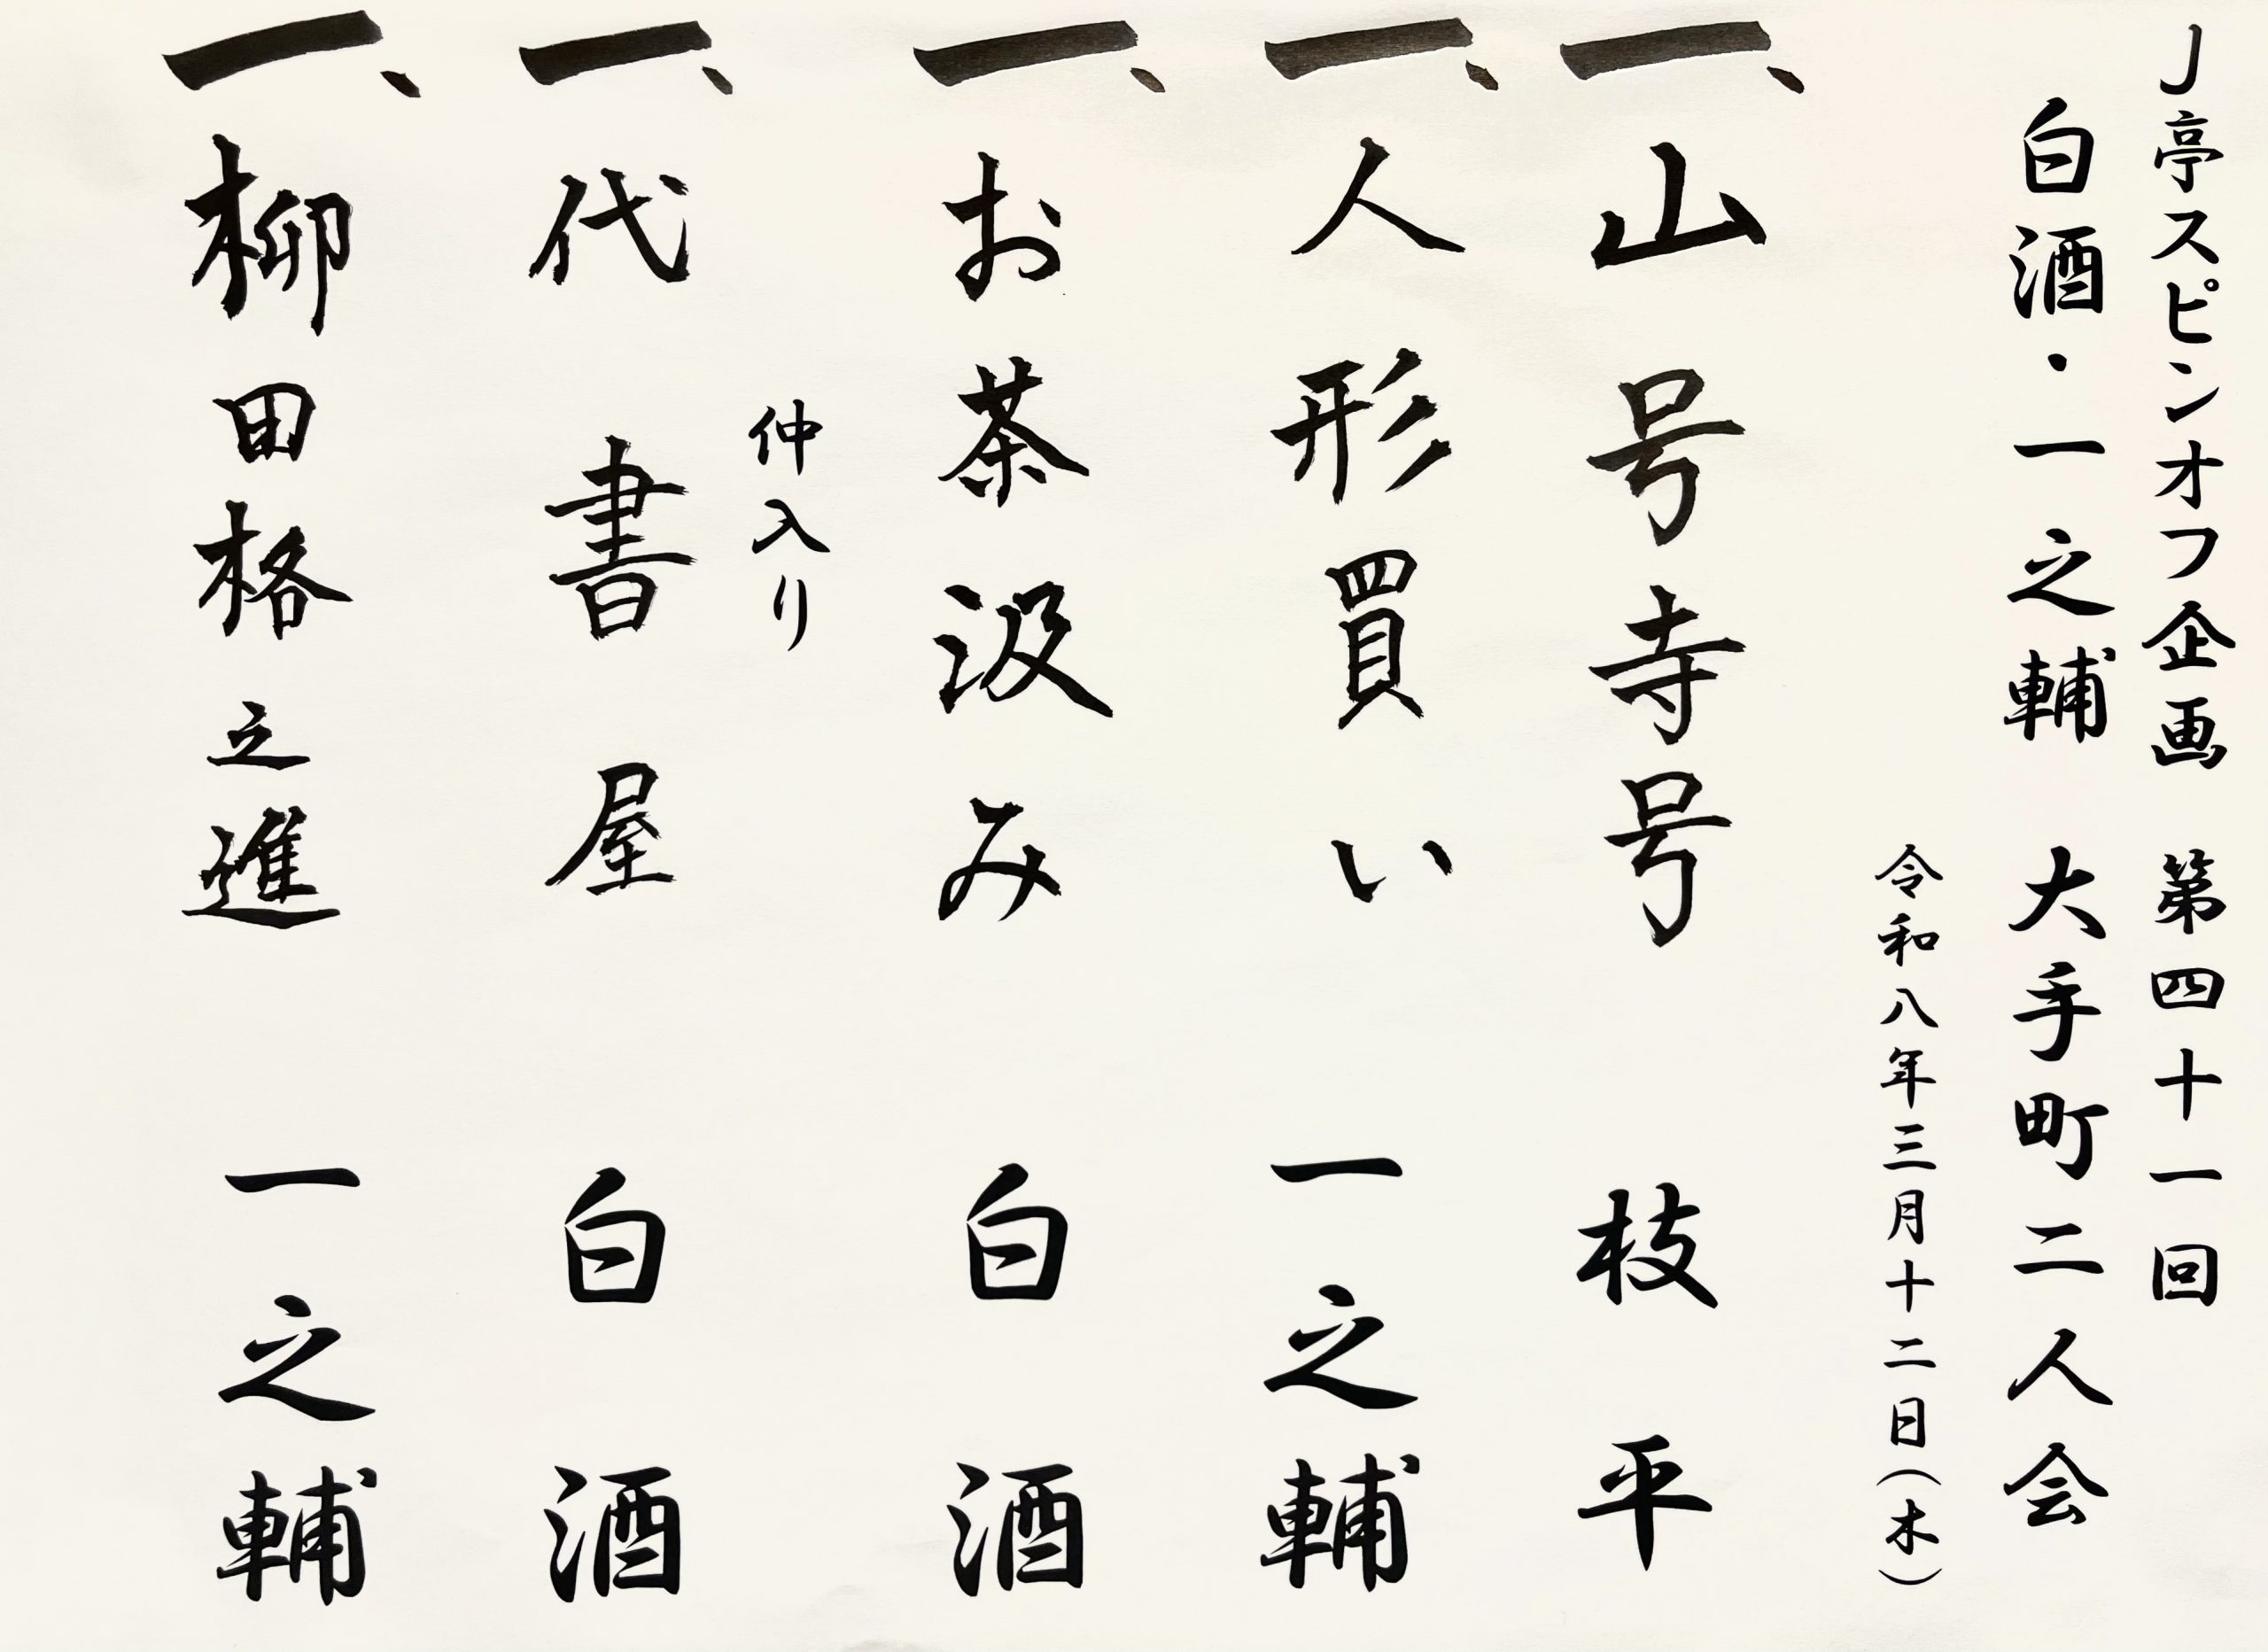 J亭スピンオフ企画 第四十一回
白酒・一之輔 大手町二人会
令和八年三月十二日(木)
一、山号寺号 枝平
一、人形買い 一之輔
一、お茶汲み 白酒
仲入り
一、代書屋 白酒
一、柳田格之進 一之輔